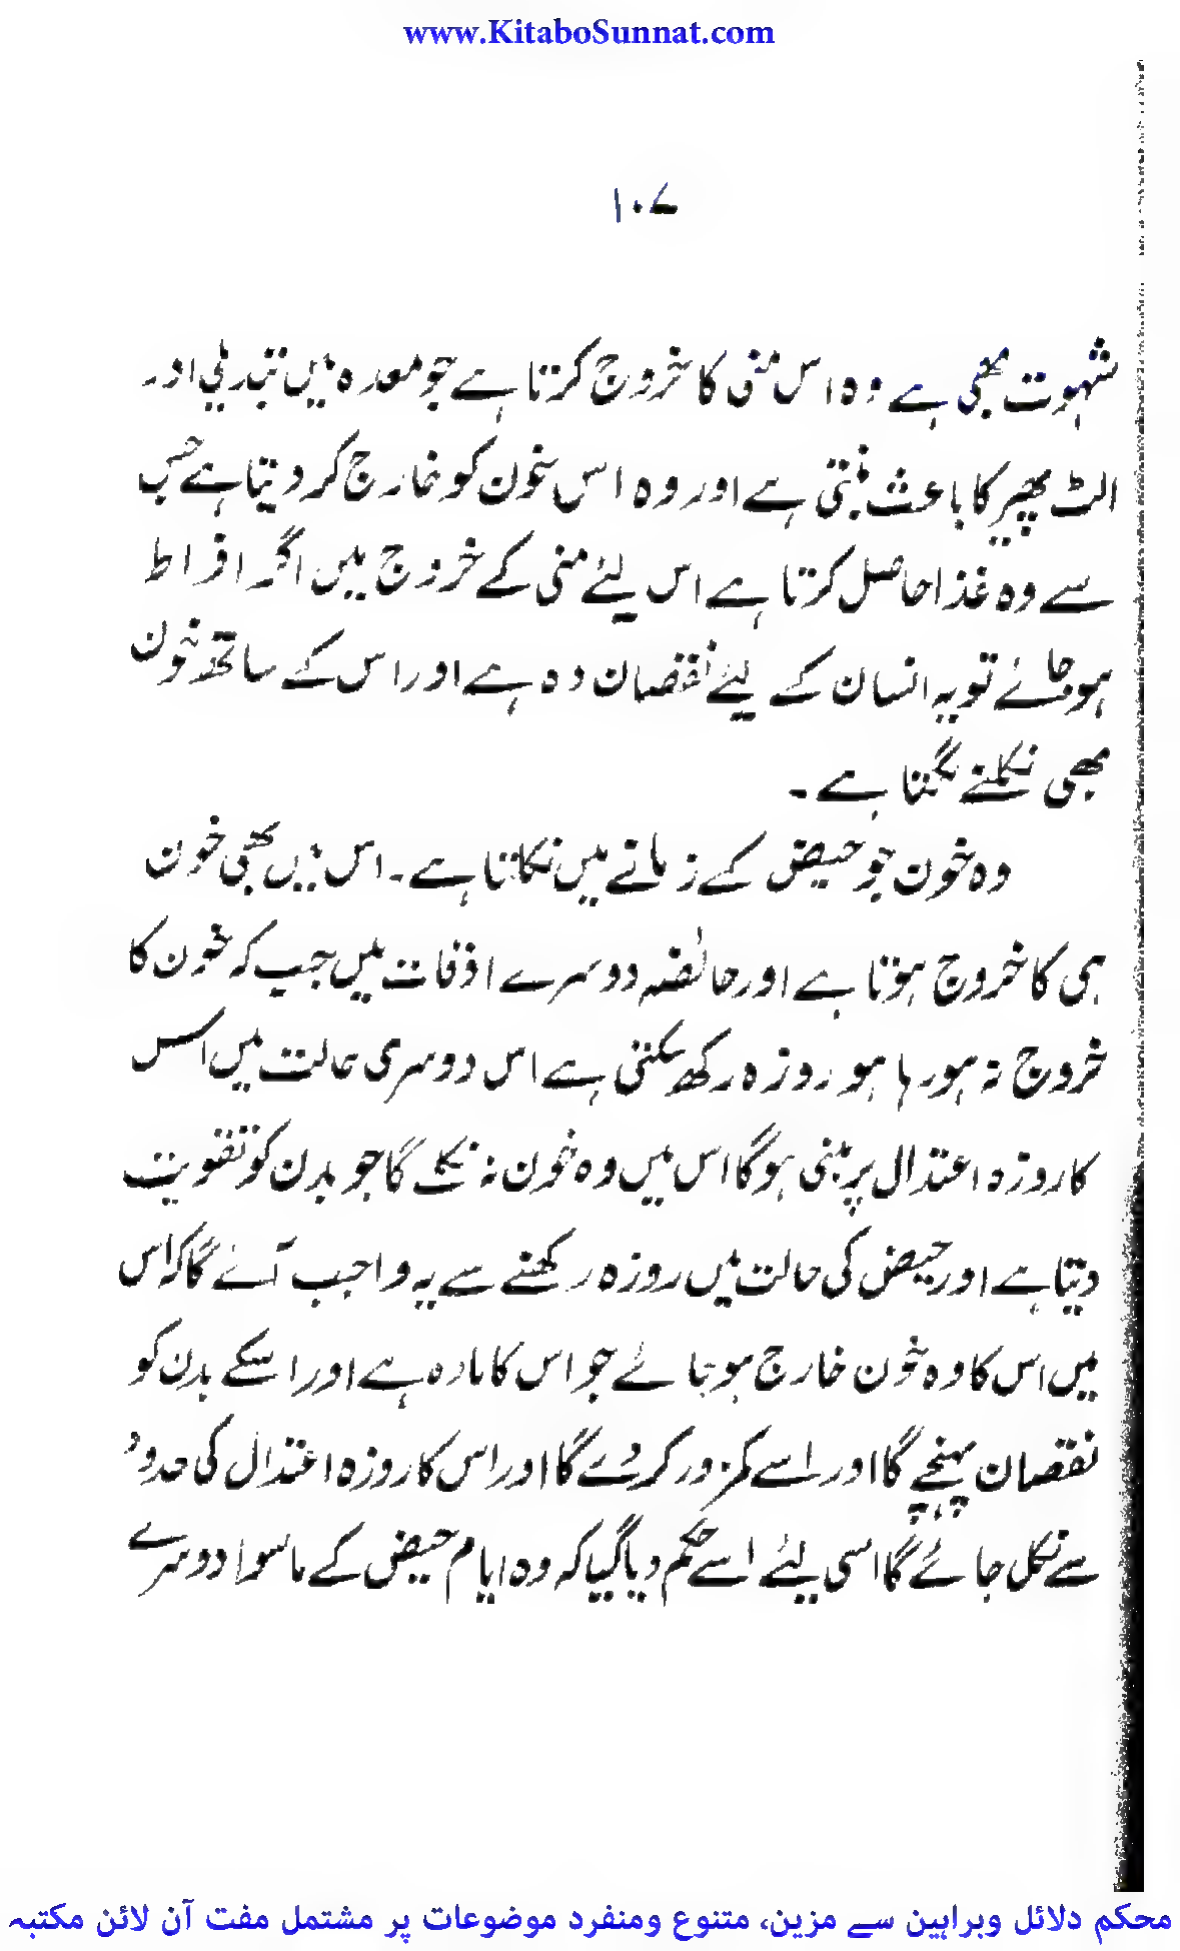 www.KitaboSunnat.com
۱۰۷
شہوت بھی ہے وہ اس منی کا خروج کرتا ہے جو معدہ میں تبدیلی اور
الٹ پھیر کا باعث بنتی ہے اور وہ اس خون کو خارج کر دیتا ہے جس
سے وہ غذا حاصل کرتا ہے اس لئے منی کے خروج میں اگر افراط
ہو جائے تو یہ انسان کے لیئے نقصان دہ ہے اور اس کے ساتھ خون
بھی نکلنے لگتا ہے۔
وہ خون جو حیض کے زمانے میں نکلتا ہے۔ اس میں بھی خون
ہی کا خروج ہوتا ہے اور حائضہ دوسرے اوقات میں جب کہ خون کا
خروج نہ ہو رہا ہو روزہ رکھ سکتی ہے اس دوسری حالت میں اس
کا روزہ اعتدال پر مبنی ہوگا اس میں وہ خون نہ نکلے گا جو بدن کو تقویت
دیتا ہے اور حیض کی حالت میں روزہ رکھنے سے یہ واجب آئے گا کہ اس
میں اس کا وہ خون خارج ہو جائے جو اس کا مادہ ہے اور اسکے بدن کو
نقصان پہنچے گا اور اسے کمزور کر دے گا اور اس کا روزہ اعتدال کی حدود
سے نکل جائے گا اسی لیئے اسے حکم دیا گیا کہ وہ ایام حیض کے ماسوا دوسرے
محکم دلائل وبراہین سے مزین، متنوع ومنفرد موضوعات پر مشتمل مفت آن لائن مکتبہ